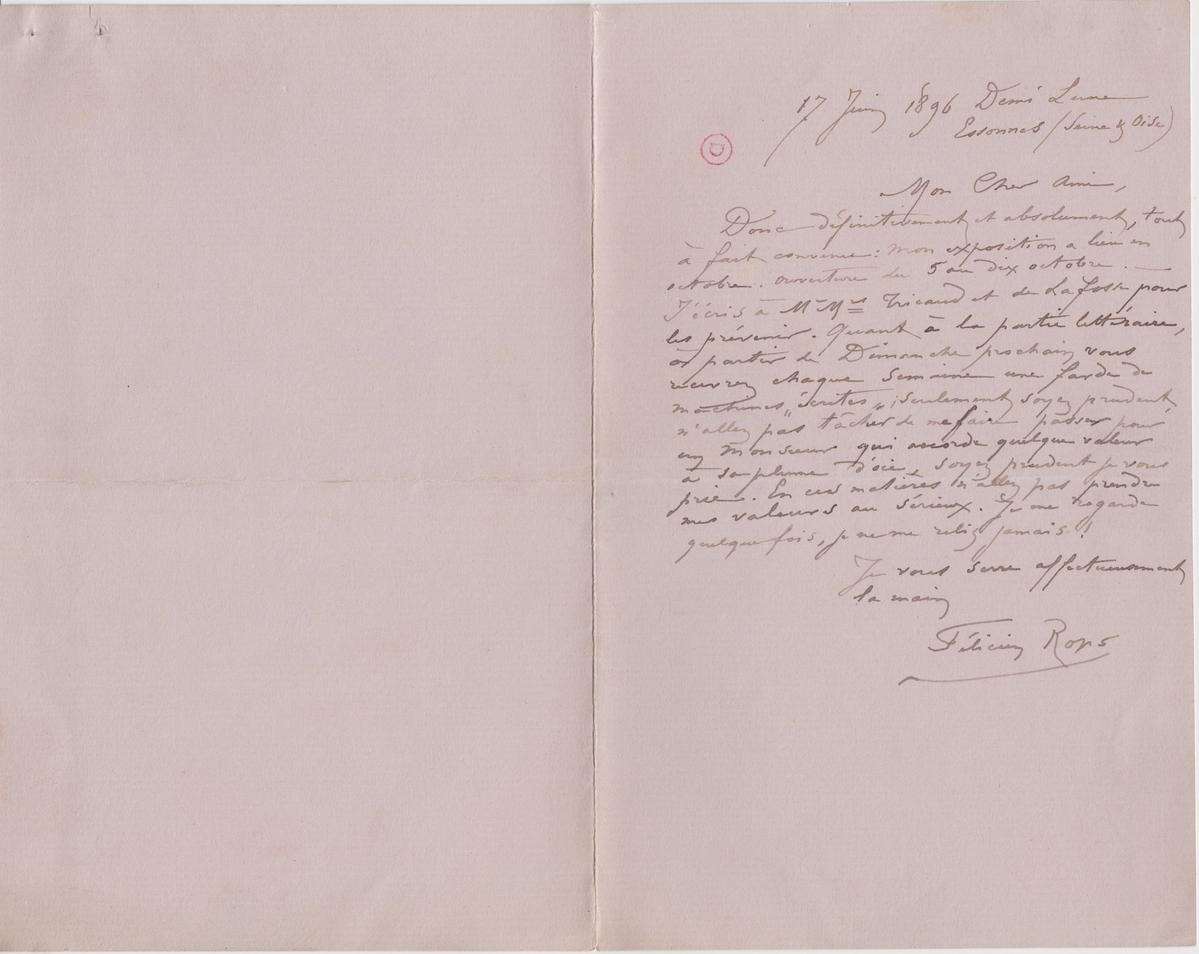 17 Juin 1896 Demi Lune
Essonnes (Seine & Oise)
Mon Cher Ami,
Donc définitivement et absolument, tout
à fait convenu : mon exposition a lieu en
octobre. ouverture du 5 au dix octobre. —
J'écris à M.Mrs Tricaud et de La fosse pour
les prévenir. Quant à la partie littéraire,
à partir de Dimanche prochain vous
recevrez chaque semaine une farde de
machines „écrites„ ; seulement soyez prudent,
n'allez pas tâcher de me faire passer pour
un Monsieur qui accorde quelque valeur
à sa plume d'oie, soyez prudent je vous
prie. En ces matières n'allez pas prendre
mes valeurs au sérieux. Je me regarde
quelquefois, je ne me relis jamais !
Je vous serre affectueusement
la main
Félicien Rops